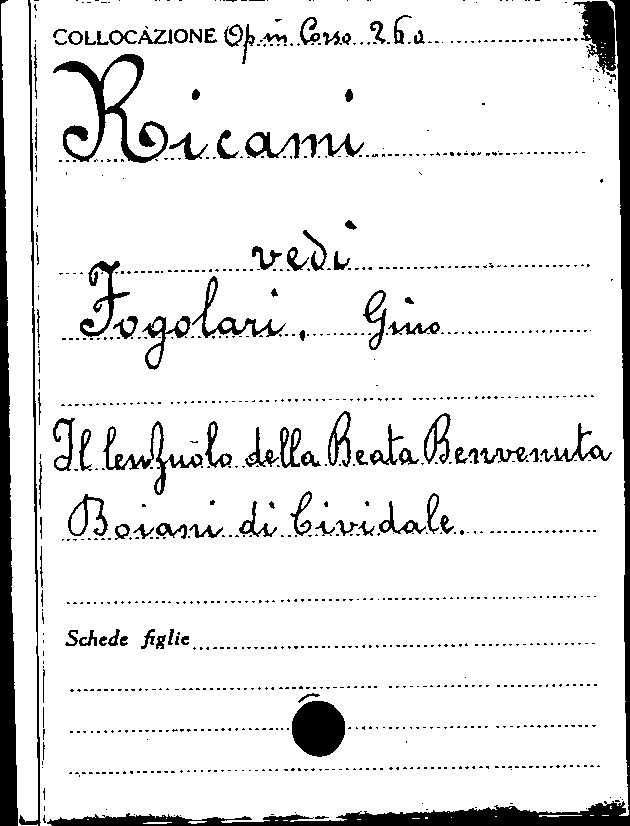 COLLOCAZIONE Op in Corso 260
Ricami
vedi
Fogolari, Gino
Il lenzuolo della Beata Benvenuta
Boiani di Cividale.
Schede figlie